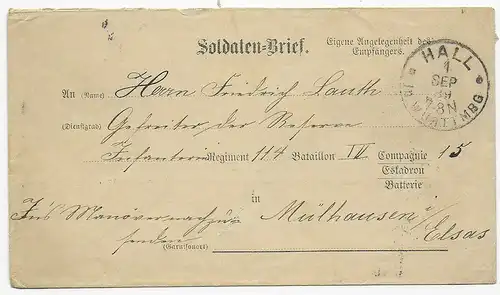 Soldaten-Brief.
Eigene Angelegenheit des
Empfängers.
HALL
1
SEP
7-8N
IN WÜRTTMBG
An (Name) Herrn Friedrich Lauth
(Dienstgrad) Gefreiter der Reserve
Infanterie Regiment 114 Bataillon IV Compagnie 15
Estadron
Batterie
in Mülhausen i/
Ins Manöver nachzu
senden (Garnisonort) Elsas